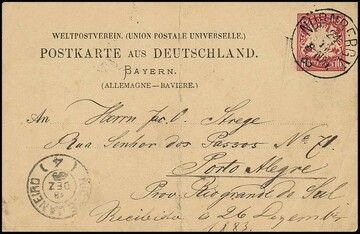 WELTPOSTVEREIN. (UNION POSTALE UNIVERSELLE.)
POSTKARTE AUS DEUTSCHLAND.
BAYERN.
(ALLEMAGNE – BAVIÈRE.)
NÜRNBERG
An Herrn Jac. O. Strege
Rua Senhor dos Passos No 71
Porto Alegre
Prov. Rio grande do Sul
Recibida a 26 Dezembro
1883
RIO DE JANEIRO
18
DEZ